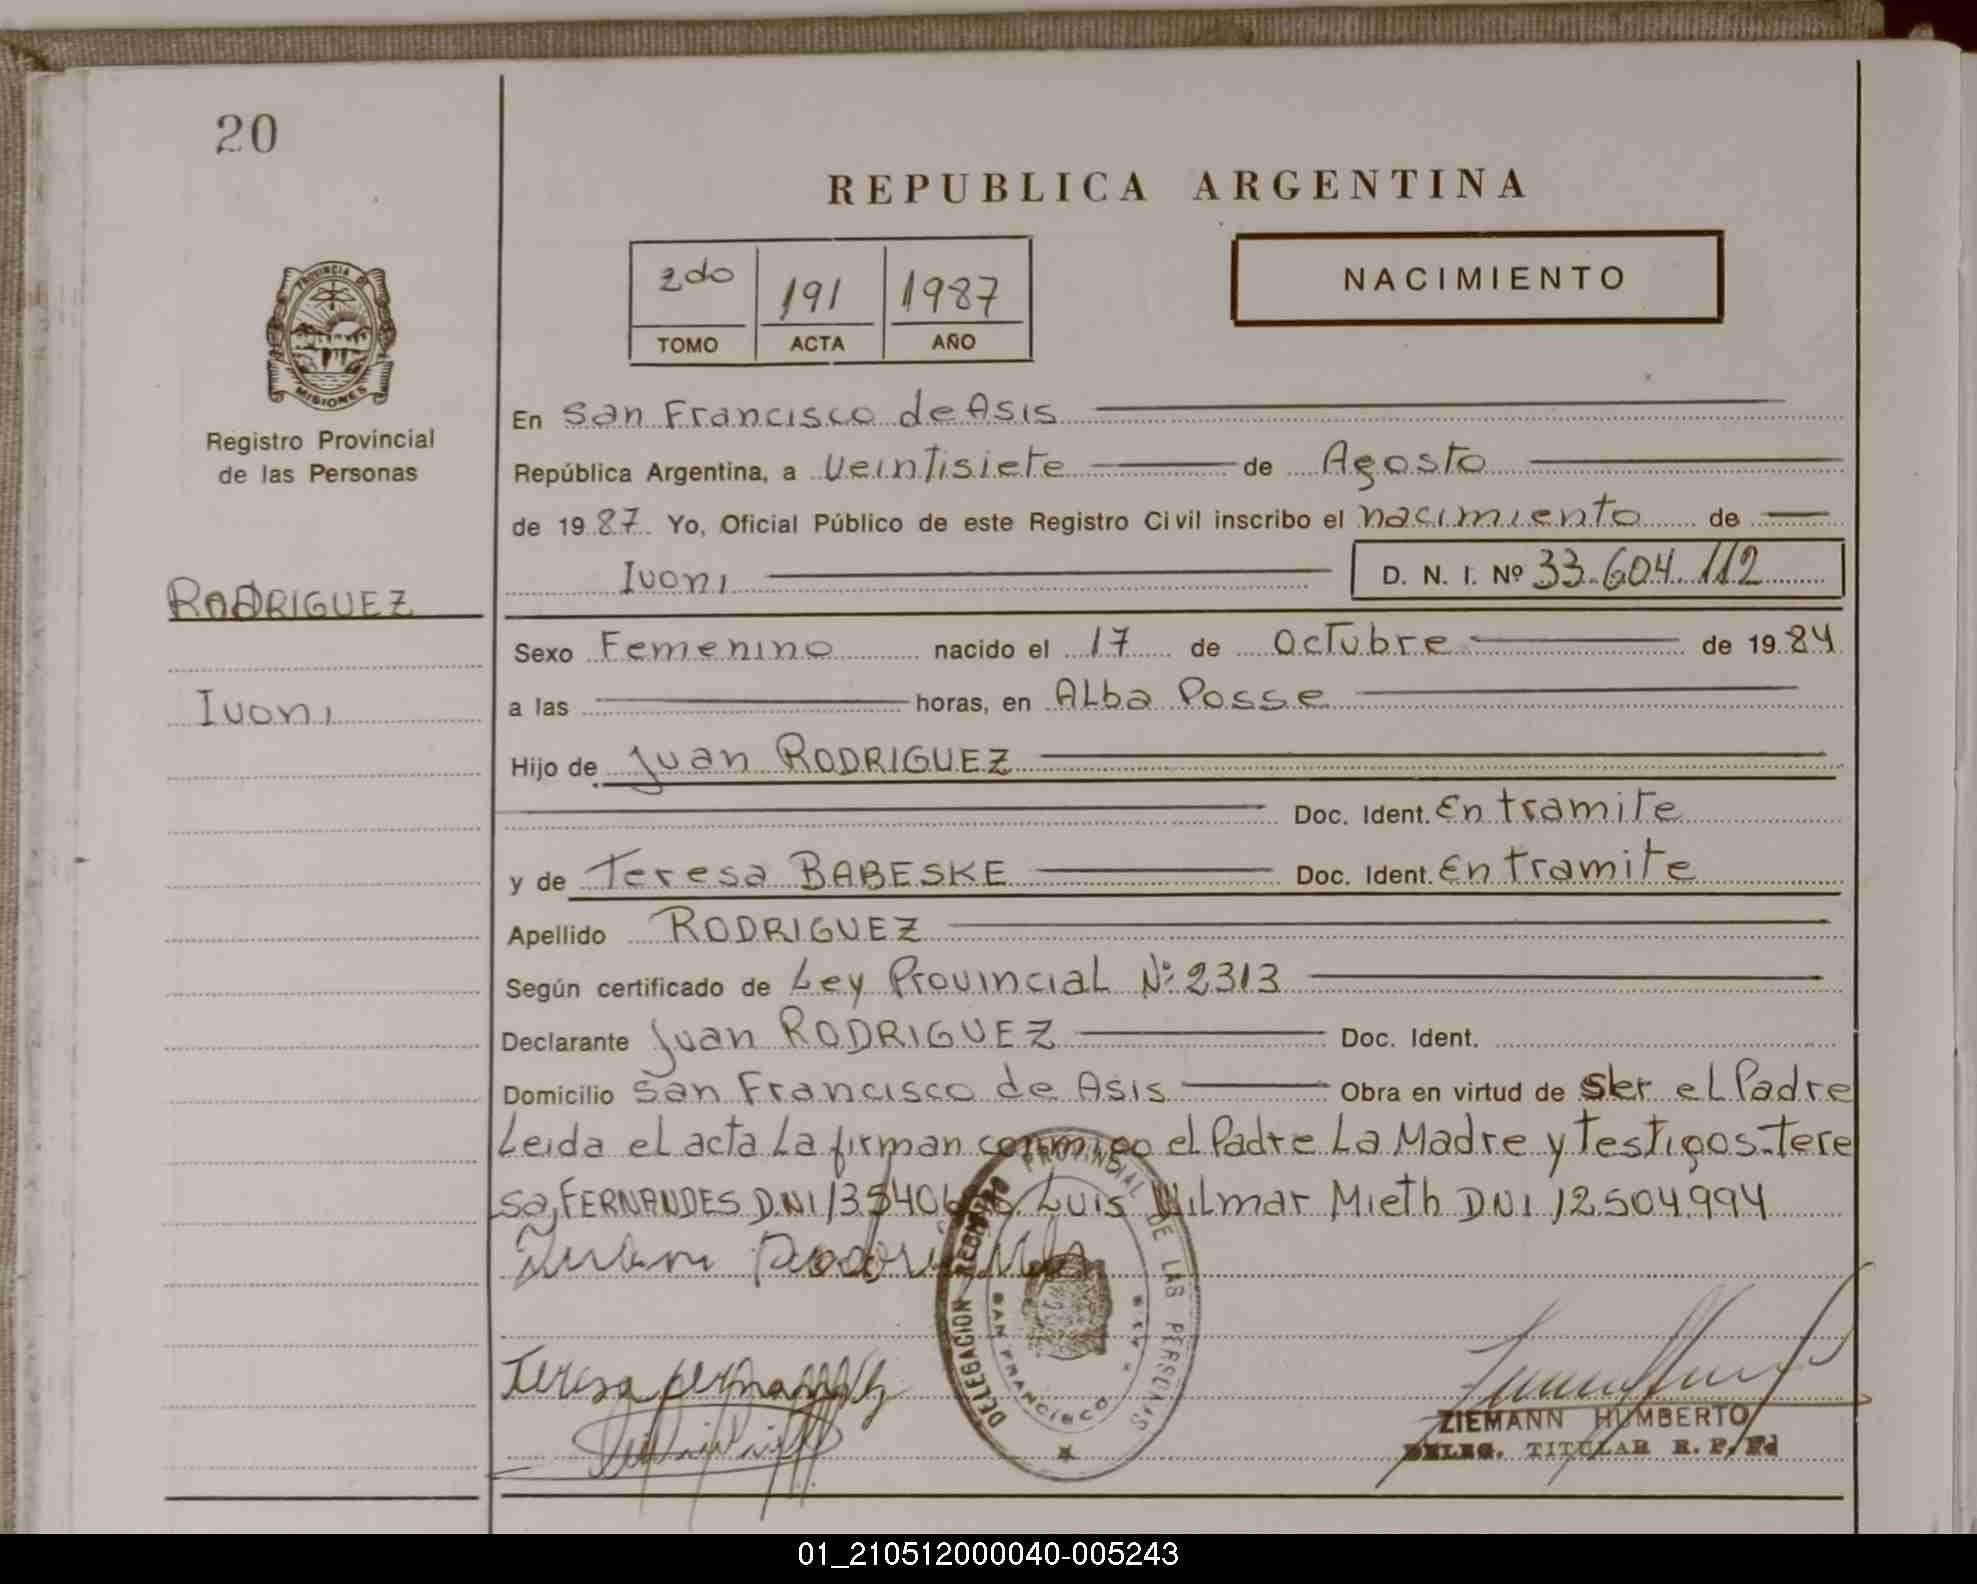 20
REPUBLICA ARGENTINA
2do 191 1987
TOMO ACTA AÑO
NACIMIENTO
PROVINCIA DE
MISIONES
Registro Provincial
de las Personas
RODRIGUEZ
Ivoni
En San Francisco de Asis
República Argentina, a Veintisiete de Agosto
de 1987 Yo, Oficial Público de este Registro Civil inscribo el nacimiento de
Ivoni D. N. I. Nº 33.604.112
Sexo Femenino nacido el 17 de Octubre de 1984
a las horas, en Alba Posse
Hijo de Juan RODRIGUEZ
Doc. Ident. En tramite
y de Teresa BABESKE Doc. Ident. En tramite
Apellido RODRIGUEZ
Según certificado de Ley Provincial Nº 2313
Declarante Juan RODRIGUEZ Doc. Ident.
Domicilio San Francisco de Asis Obra en virtud de Ser el Padre
Leida el acta La firman conmigo el Padre La Madre y Testigos-Tere
sa FERNANDES DNI Luis Wilmar Mieth DNI 12.504.994
Teresa
DELEGACION REGISTRO PROVINCIAL DE LAS PERSONAS
SAN FRANCISCO
ZIEMANN HUMBERTO
DELEG. TITULAR R. P.
01_210512000040-005243